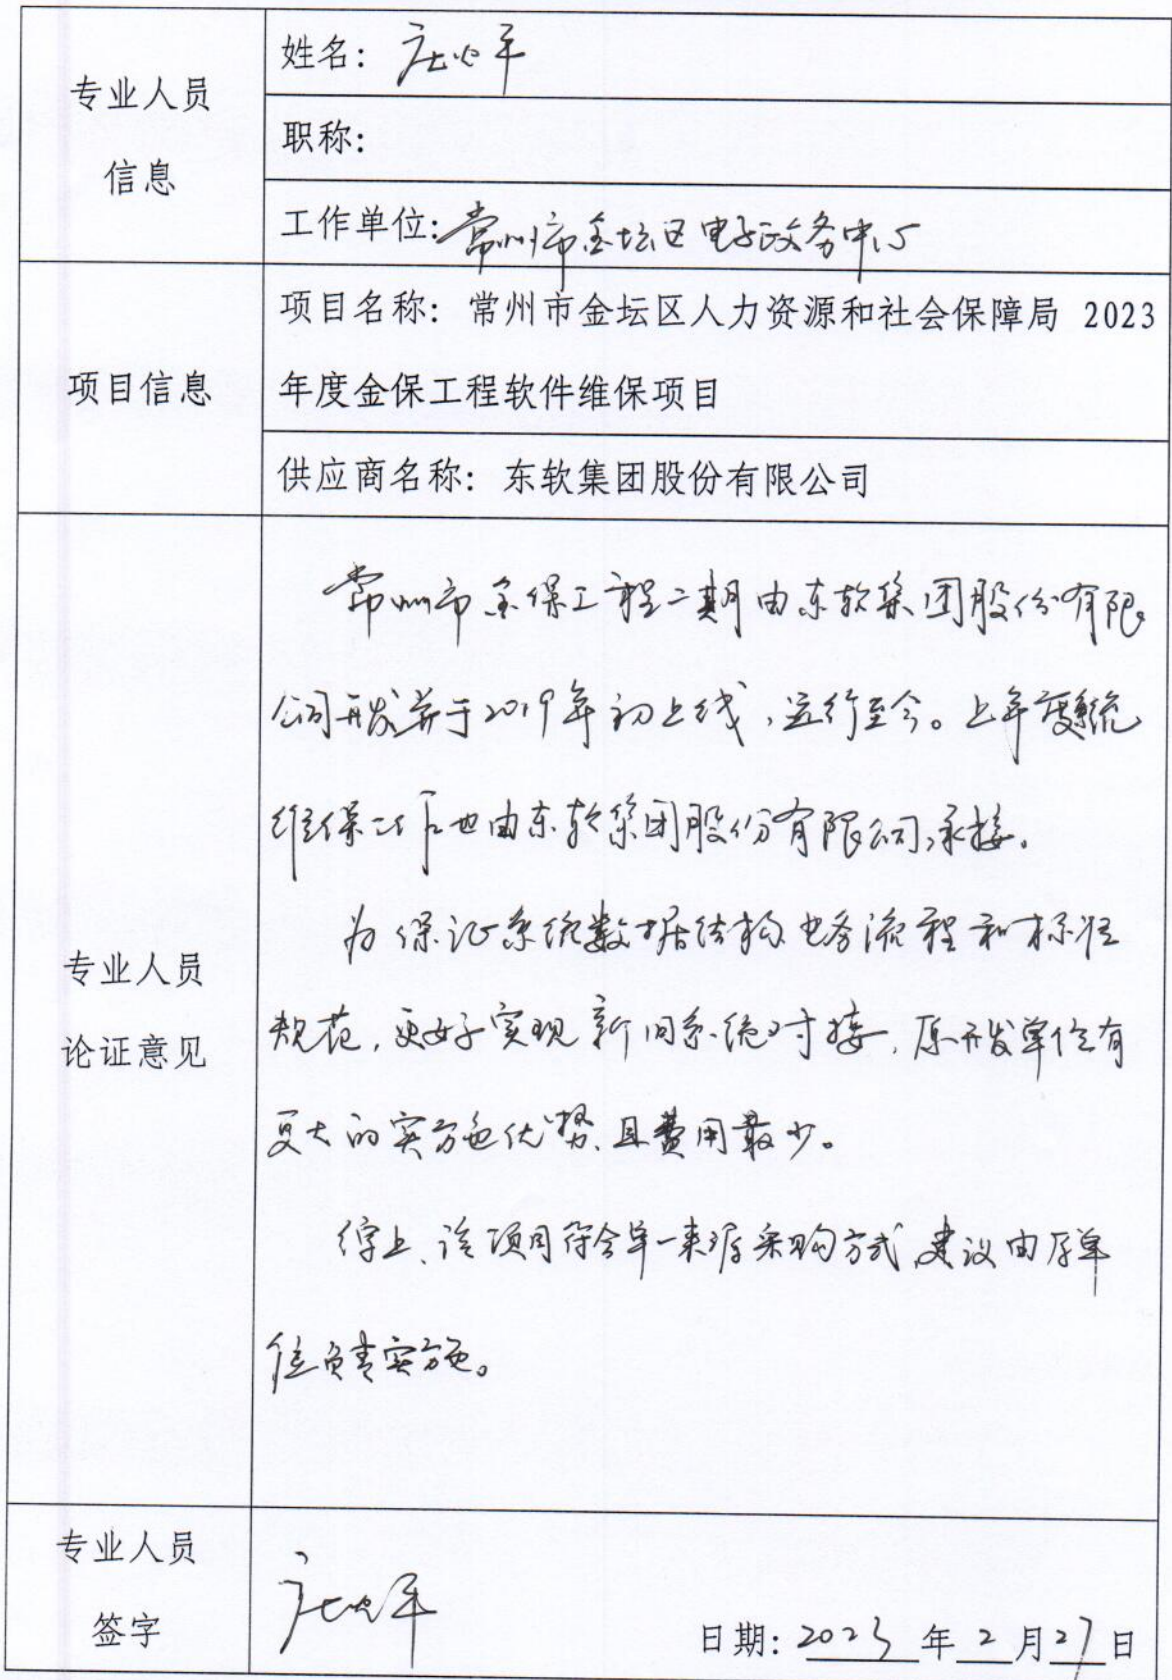 专业人员
信息
姓名：
职称：
工作单位：常州市金坛区电子政务中心
项目信息
项目名称：常州市金坛区人力资源和社会保障局 2023
年度金保工程软件维保项目
供应商名称：东软集团股份有限公司
专业人员
论证意见
常州市金保工程二期由东软集团股份有限
公司开发并于2019年初上线，运行至今。上年度系统
维保工作也由东软集团股份有限公司承接。
为保证系统数据结构、业务流程和标准
规范，更好实现新旧系统对接，原开发单位有
更大的实施优势，且费用最少。
综上，该项目符合单一来源采购方式，建议由原单
位负责实施。
专业人员
签字
日期：2023年2月27日